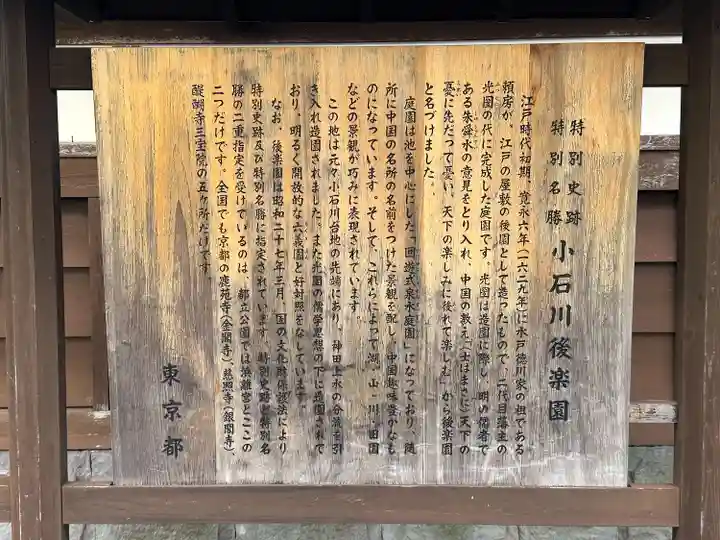 特別史跡
特別名勝
小石川後楽園
江戸時代初期、寛永六年（一六二九年）に水戸徳川家の祖である
頼房が、江戸の屋敷の後園として造ったもので、二代目藩主の
光圀の代に完成した庭園です。光圀は造園に際し、明の儒者で
ある朱舜水の意見をとり入れ、中国の教え「士はまさに）天下の
憂に先だって憂い、天下の楽しみに後れて楽しむ」から後楽園
と名づけました。
庭園は池を中心にした「回遊式泉水庭園」になっており、随
所に中国の名所の名前をつけた景観を配し、中国趣味豊かなも
のになっています。そして、これらによって湖・山・川・田園
などの景観が巧みに表現されています。
この地は元々小石川台地の先端にあり、神田上水の分流を引
き入れ造園されました。また光圀の儒学思想の下に造園されて
おり、明るく開放的な六義園と好対照をなしています。
なお、後楽園は昭和二十七年三月、国の文化財保護法により
特別史跡及び特別名勝に指定されています。特別史跡と特別名
勝の二重指定を受けているのは、都立公園では浜離宮とここの
二つだけです。全国でも京都の鹿苑寺（金閣寺）、慈照寺（銀閣寺）、
醍醐寺三宝院の五ヶ所だけです。
東京都